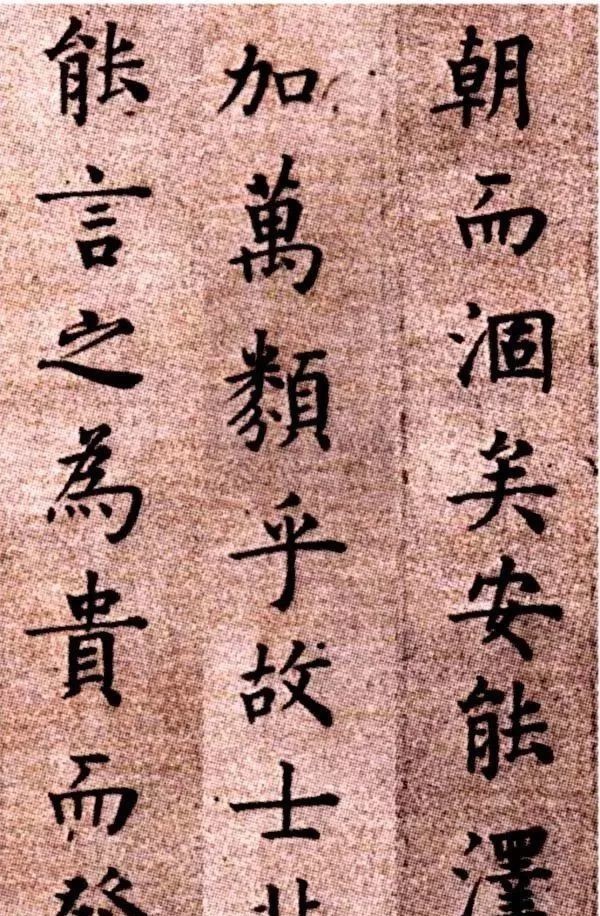 朝而涸矣安能澤
加萬類乎故士
能言之為貴而發